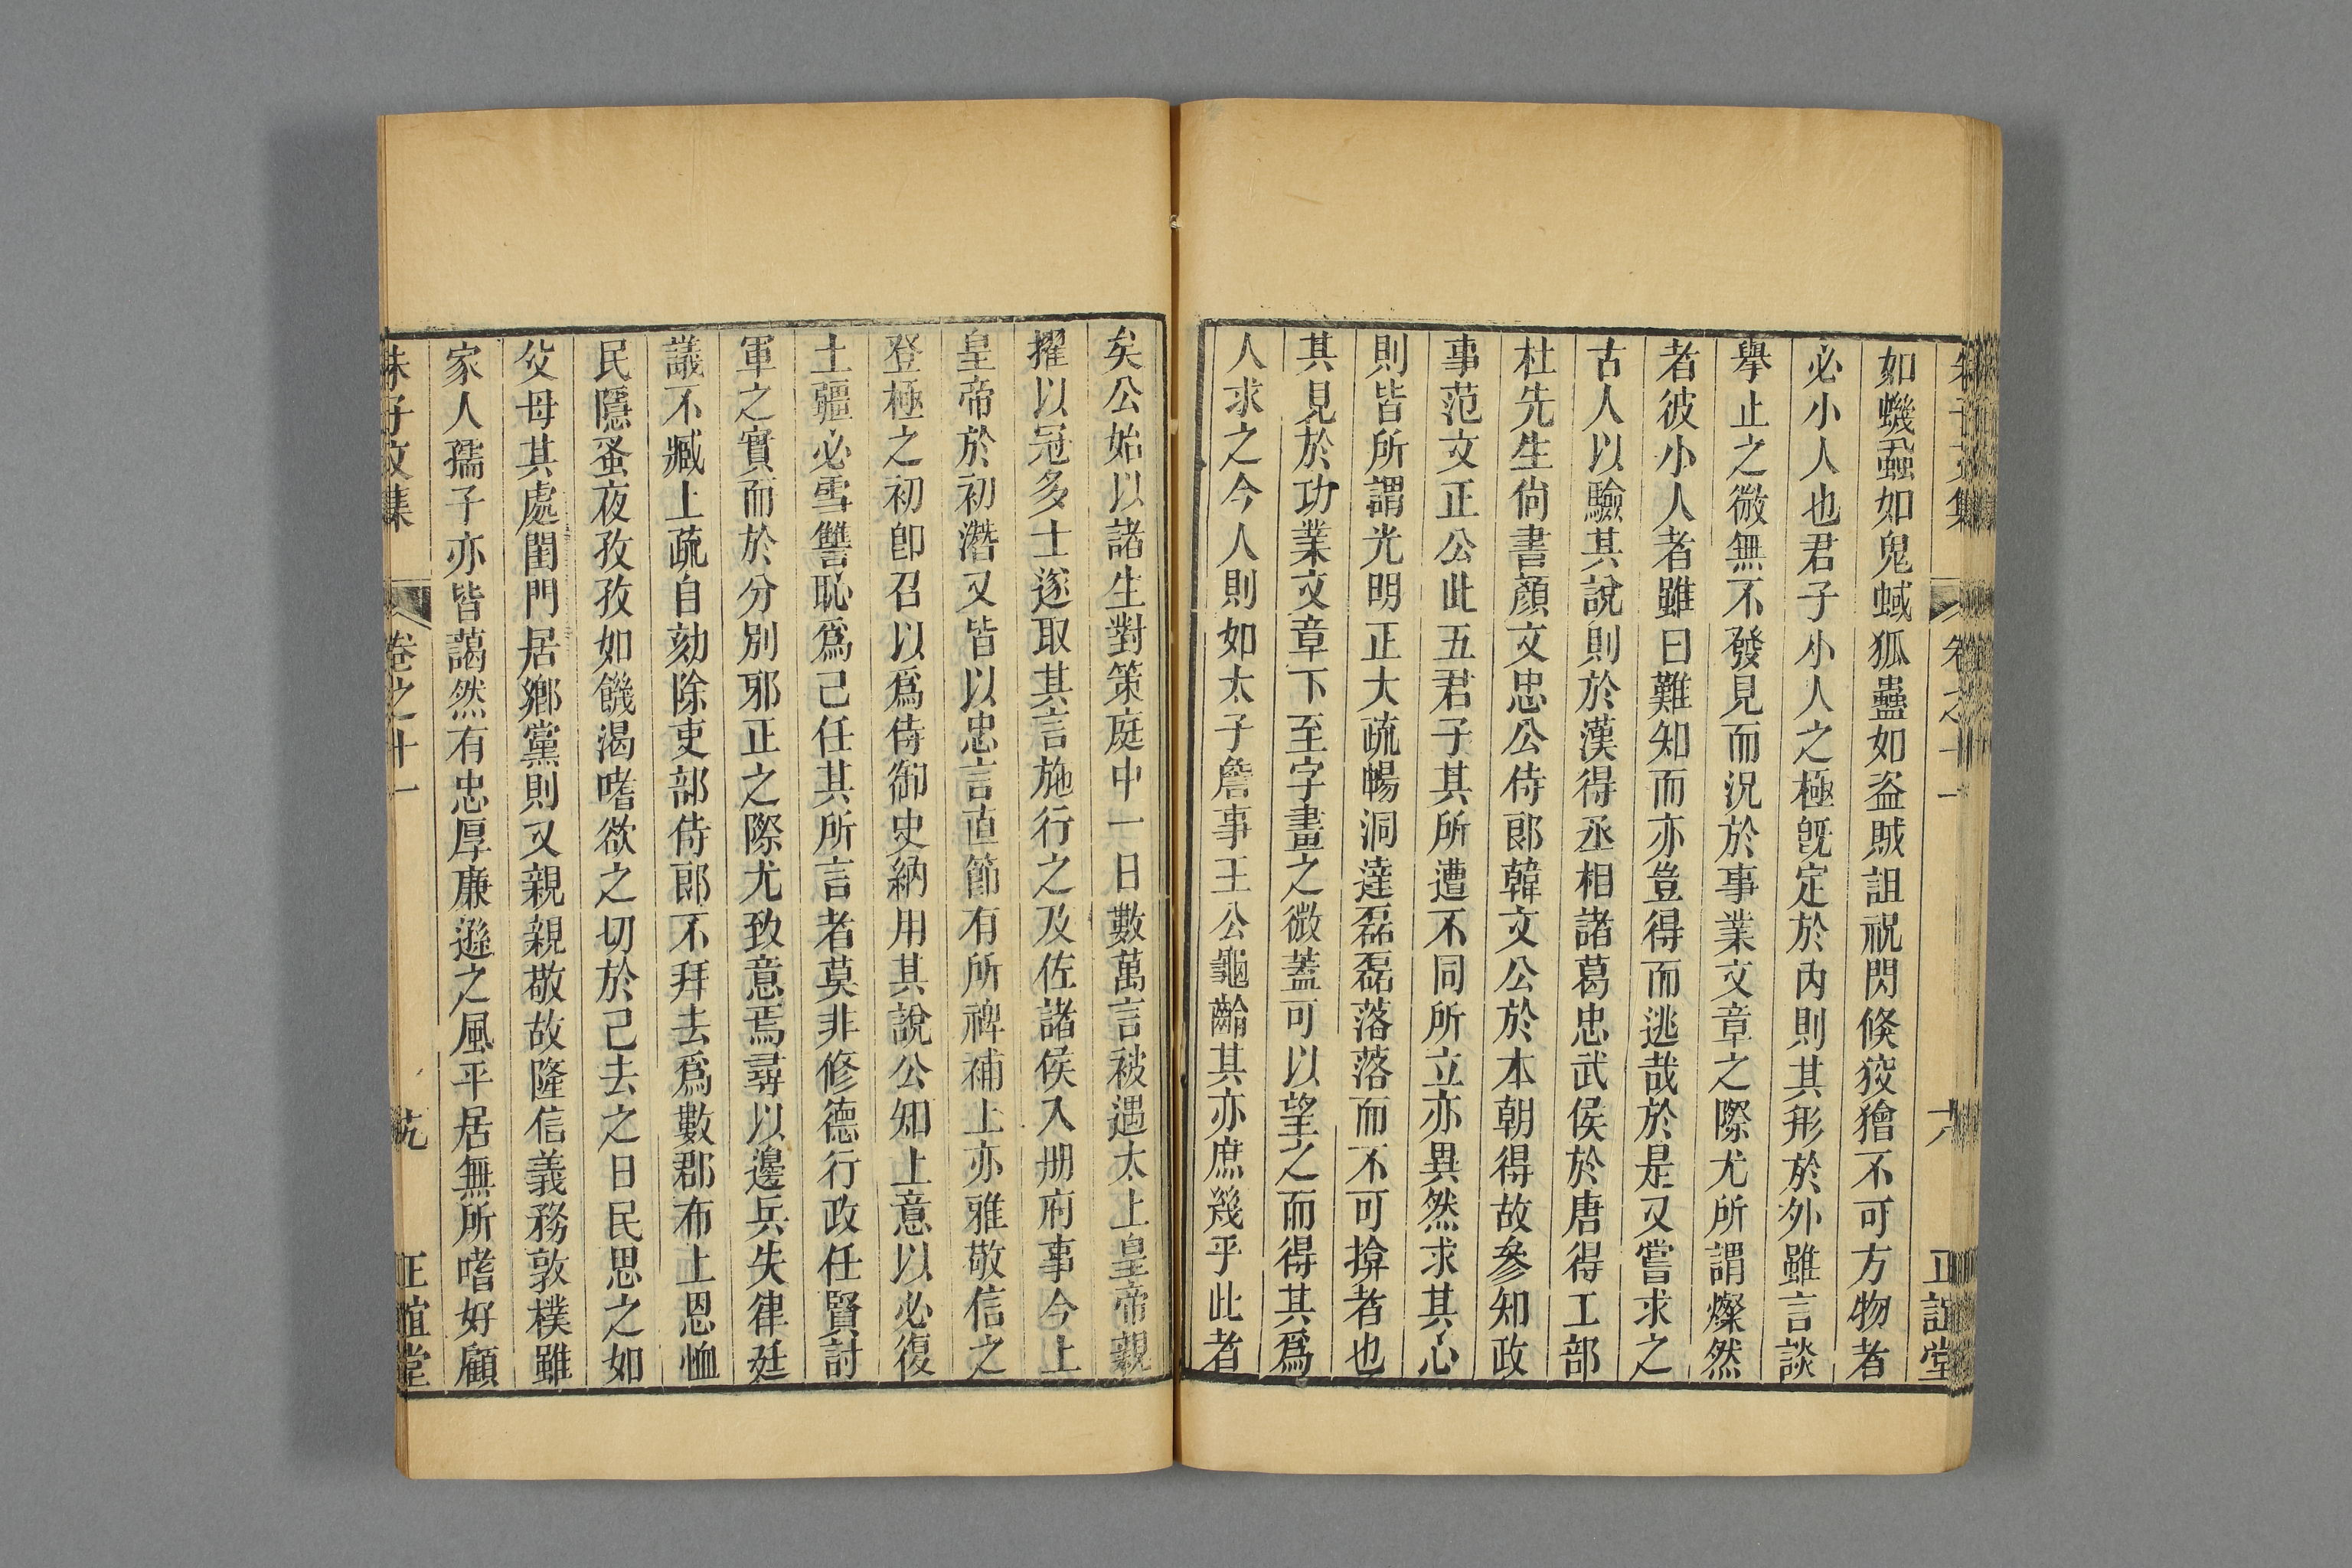 如蟣蝨如鬼蜮狐蠱如盗賊詛祝閃倐狡獪不可方物者
必小人也君子小人之極旣定於內則其形於外雖言談
舉止之微無不發見而況於事業文章之際尤所謂燦然
者彼小人者雖曰難知而亦豈得而逃哉於是又嘗求之
古人以驗其說則於漢得丞相諸葛忠武侯於唐得工部
杜先生尙書顏文忠公侍郎韓文公於本朝得故參知政
事范文正公此五君子其所遭不同所立亦異然求其心
則皆所謂光明正大疏暢洞達磊磊落落而不可揜者也
其見於功業文章下至字畫之微蓋可以望之而得其爲
人求之今人則如太子詹事王公龜齡其亦庶幾乎此者
矣公始以諸生對策庭中一日數萬言被遇太上皇帝親
擢以冠多士遂取其言施行之及佐諸侯入册府事今上
皇帝於初潛又皆以忠言直節有所裨補上亦雅敬信之
登極之初卽召以爲侍御史納用其說公知上意以必復
土疆必雪讐恥爲己任其所言者莫非修德行政任賢討
軍之實而於分別邪正之際尤致意焉尋以邊兵失律廷
議不臧上疏自劾除吏部侍郎不拜去爲數郡布上恩恤
民隱蚤夜孜孜如饑渴嗜欲之切於己去之日民思之如
父母其處閨門居鄉黨則又親親敬故隆信義務敦樸雖
家人孺子亦皆藹然有忠厚廉遜之風平居無所嗜好顧
朱子文集 卷之十一 正誼堂